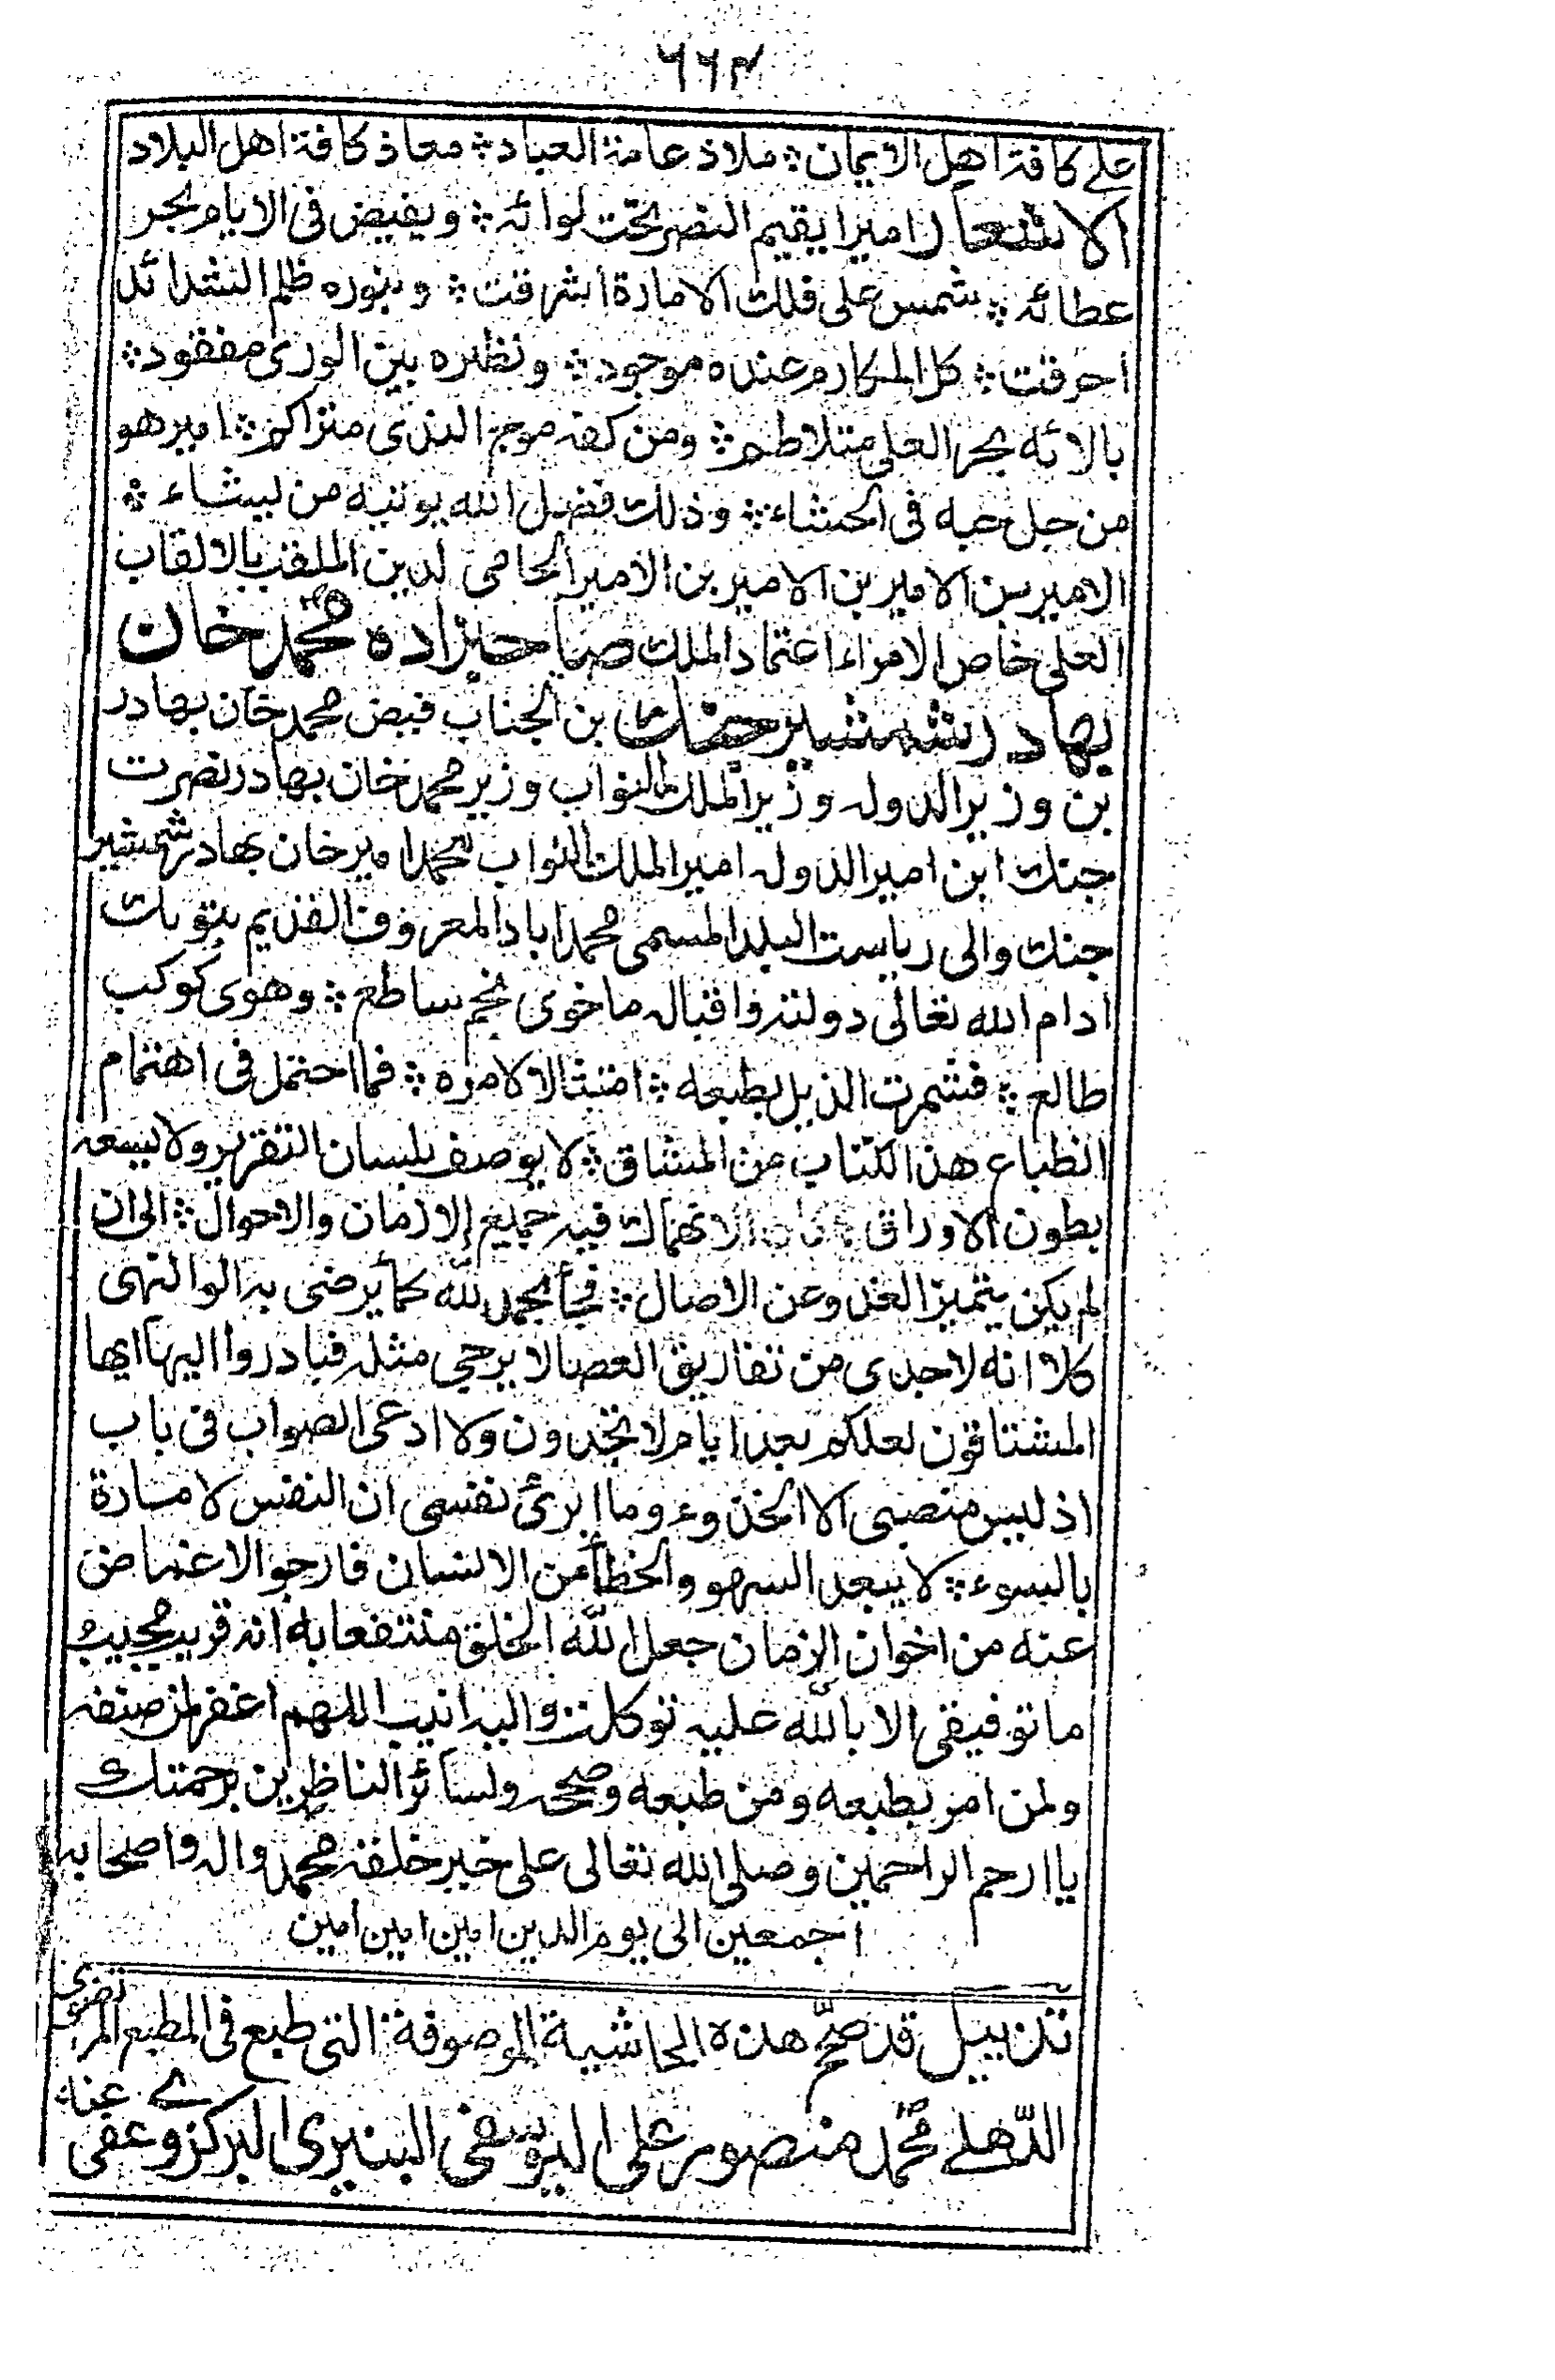 ٦٦٣
علے كافة اهل الايمان ؞ ملاذ عامة العباد ؞ معاذ كافة اهل البلاد
الاشعار اميرا يقيم النصر تحت لوائه ؞ ويفيض فى الايام بحر
عطائه ؞ شمس على فلك الامارة اشرقت ؞ وبنوره ظلم الشدائد
احرقت ؞ كل المكارم عنده موجود ؞ ونظيره بين الورى مفقود ؞
بالائه بحر العلى متلاطم ؞ ومن كفه موج الندى متراكم ؞ امير هو
من جل حبه فى الحشاء ؞ وذلك فضل الله يوتيه من يشاء ؞
الامير بن الامير بن الامير بن الامير الحامى لدين الملقب بالالقاب
العلى خاص الامراء اعتماد الملك صاحبزاده محمد خان
بهادر شمشير جنك بن الجناب فيض محمد خان بهادر
بن وزير الدوله وزير الملك النواب وزير محمد خان بهادر نصرت
جنك ابن امير الدوله امير الملك النواب محمد امير خان بهادر شمشير
جنك والى رياست البلد المسمى محمداباد المعروف القديم بتونك
ادام الله تعالى دولته واقباله ما خوى نجم ساطع ؞ وهوى كوكب
طالع ؞ فشمرت الذيل بطبعه ؞ امتثالا لامره ؞ فما احتمل فى اهتمام
انطباع هذا الكتاب من المشاق ؞ لا يوصف بلسان التقرير ولا يسعه
بطون الاوراق ؞ الانهماك فيه جميع الازمان والاحوال ؞ الى ان
لم يكن يتميز الغدو عن الاصال ؞ فجأ بحمد لله كما يرضى به الوا النهى
كلا انه لاجدى من تفاريق العصا لا يرجى مثله فبادروا اليها ايها
المشتاقون لعلكم بعد ايام لا تجدون ولا ادعى الصواب فى باب
اذ ليس منصبى الا الحذوء وما ابرئ نفسى ان النفس لامارة
بالسوء ؞ لا يبعد السهو والخطأ من الانسان فارجو الاغماض
عنه من اخوان الزمان جعل الله الخلق منتفعا به انه قريب مجيب
ما توفيقى الا بالله عليه توكلت واليه انيب اللهم اغفر لمن صنفه
ولمن امر بطبعه ومن طبعه وصححه ولسائر الناظرين برحمتك
يا ارحم الراحمين وصلى الله تعالى على خير خلقه محمد واله واصحابه
اجمعين الى يوم الدين امين امين امين
تذييل قد صحّح هذه الحاشية الموصوفة التى طبع فى المطبع المرتضوى
الدّهلے محمد منصور على اليوسفى البنيرى البركزوے عفى عنه